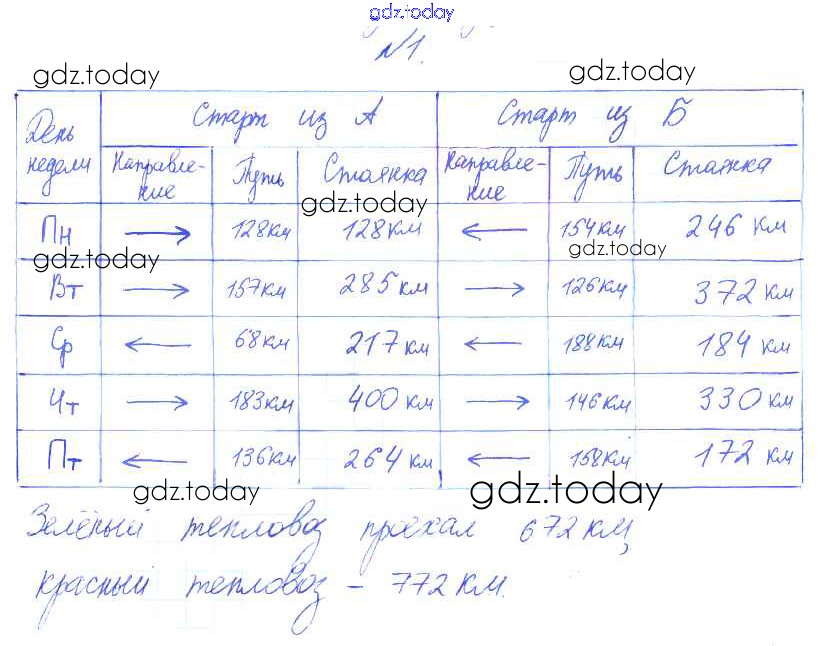 gdz.today
№1.
gdz.today gdz.today
День недели Старт из А Старт из Б
Направле-ние Путь Стоянка Направле-ние Путь Стоянка
gdz.today
Пн → 128км 128км ← 154км 246 км
gdz.today gdz.today
Вт → 157км 285 км → 126км 372 км
Ср ← 68км 217 км ← 188км 184 км
Чт → 183км 400 км → 146км 330 км
Пт ← 136км 264 км ← 158км 172 км
gdz.today gdz.today
Зелёный тепловоз проехал 672 км,
красный тепловоз – 772 км.